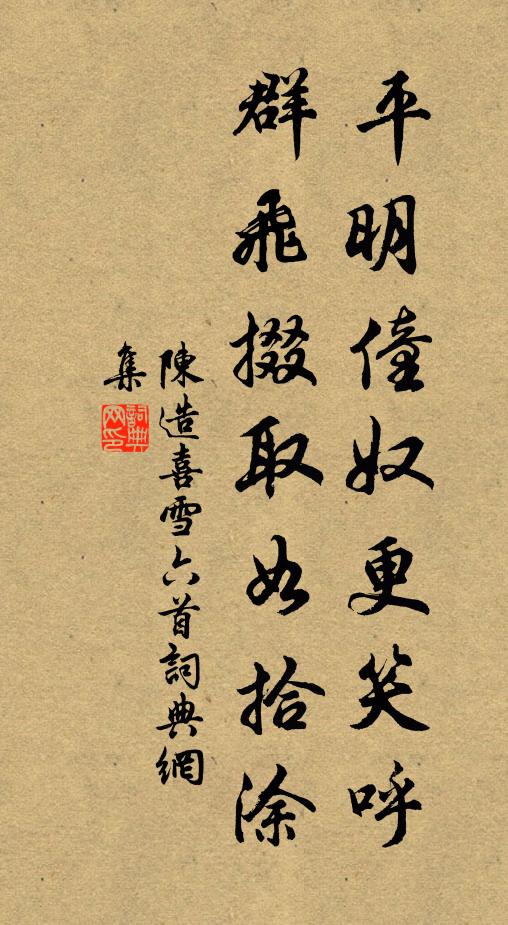 平明僮奴更笑呼
群飛掇取如拾涂
陳造喜雪六首詞典網
集
詞典网印